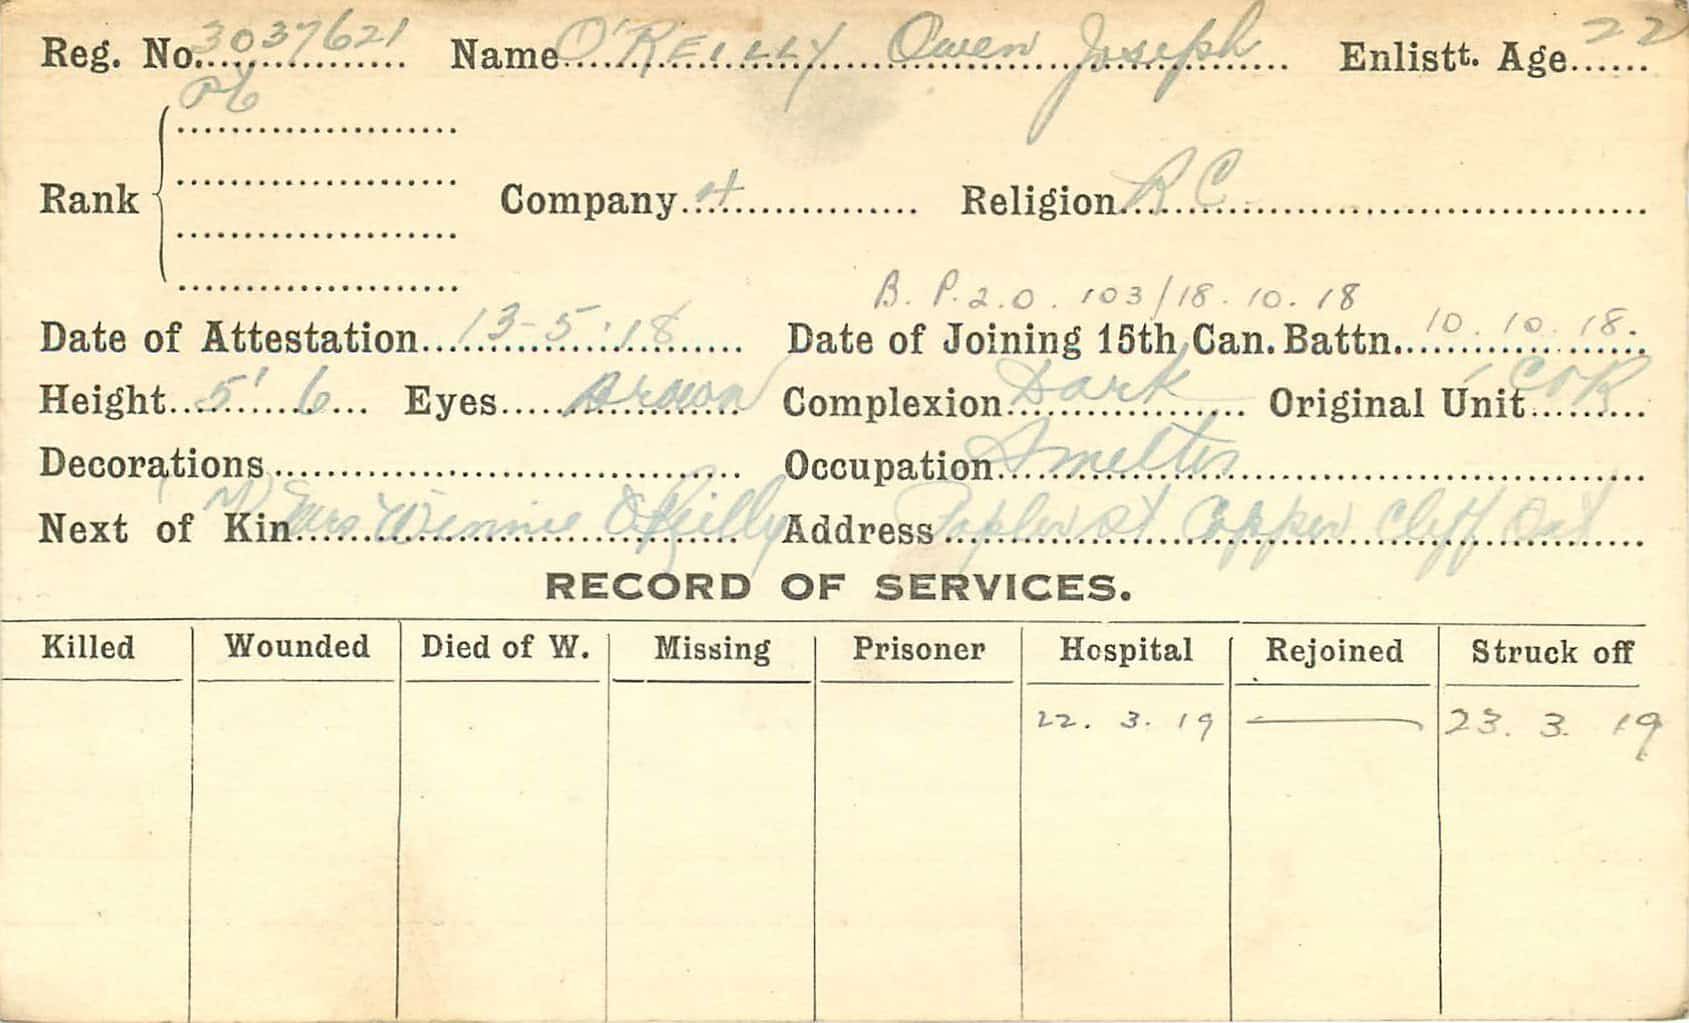 Reg. No. 3037621 Name O'REILLY Owen Joseph Enlistt. Age 22
Rank Pte Company 4 Religion R C
B. P.2.0. 103/18.10.18
Date of Attestation 13-5-18 Date of Joining 15th Can. Battn. 10.10.18.
Height 5' 6 Eyes Brown Complexion Dark Original Unit COR
Decorations Occupation Smelter
Next of Kin Mrs Winnie O'Reilly Address Poplar St Copper Cliff Ont
RECORD OF SERVICES.
Killed Wounded Died of W. Missing Prisoner Hospital Rejoined Struck off
22. 3. 19 — 23. 3. 19